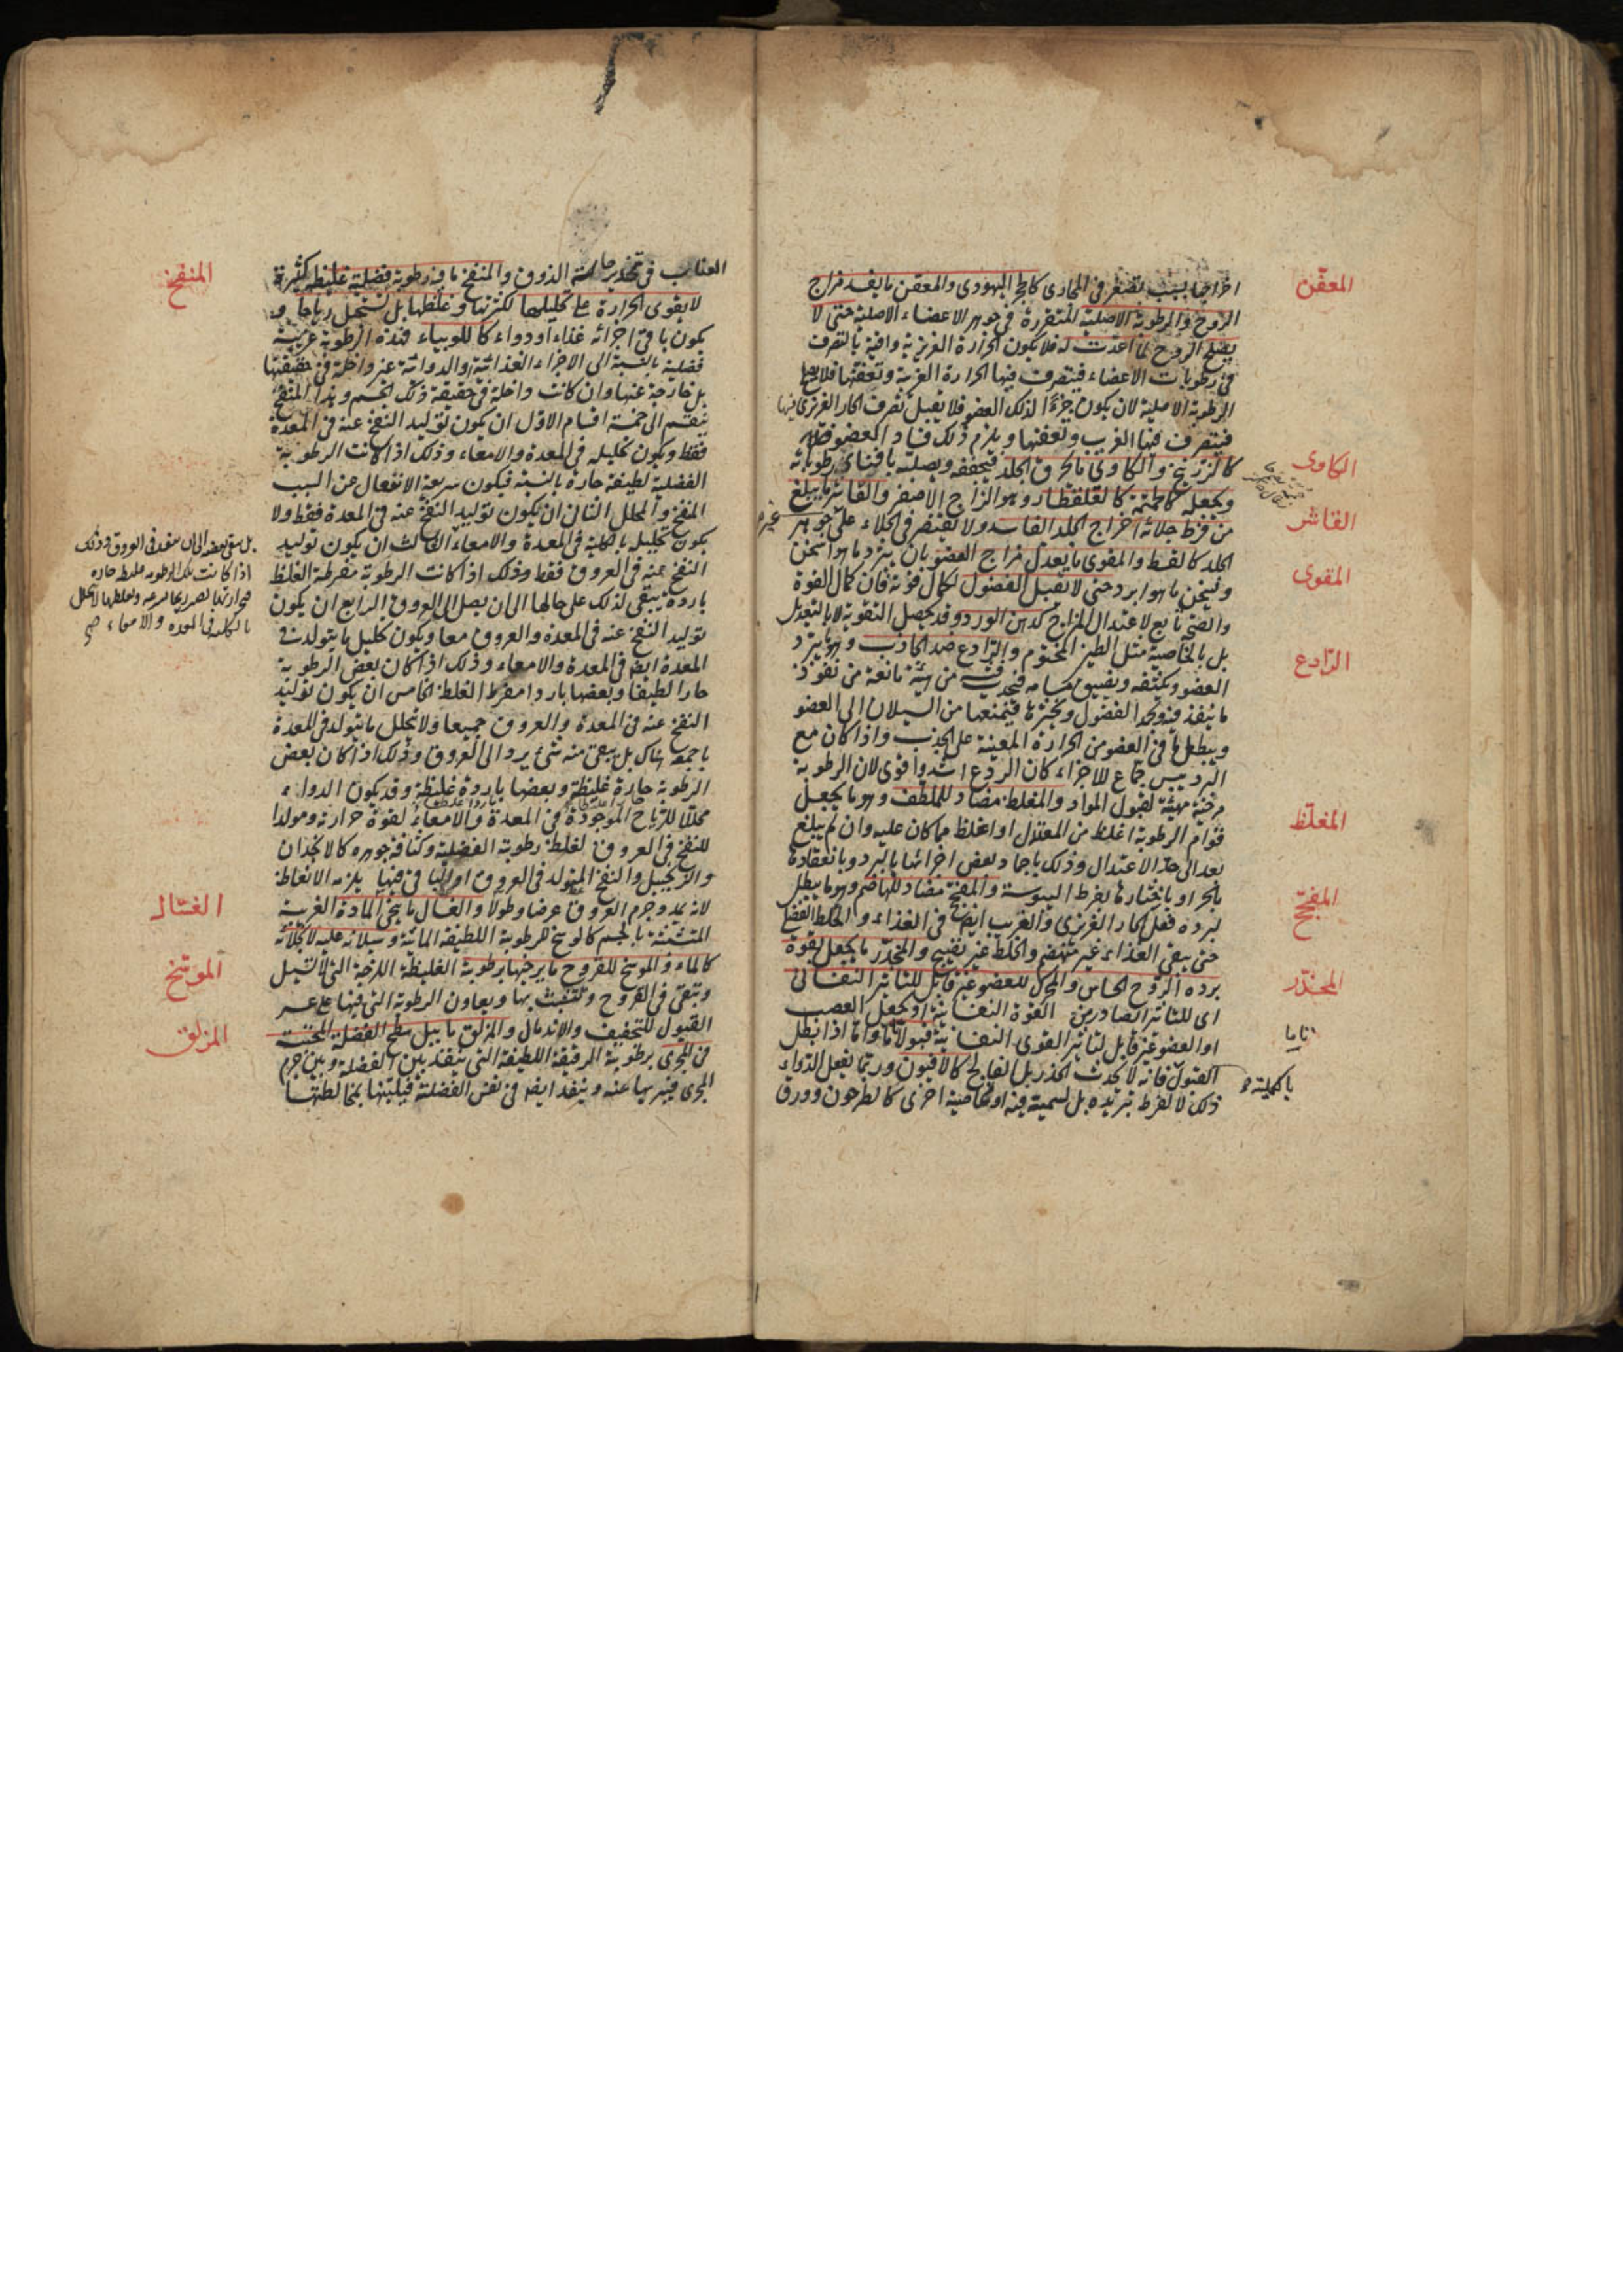 المعفّن
اجزائها بسبب تصغر فى المجارى كالحجر اليهودى والمعفن ما يفسد مزاج
الروح والرطوبة الاصلية المتقررة فى جوهر الاعضاء الاصلية حتى لا
يصلح الروح لما اعدت له فلا يكون الحرارة الغريزية وافية بالتصرف
فى رطوبات الاعضاء فيتصرف فيها الحرارة الغريبة وتعفنها فلا يصلح
الرطوبة الاصلية لان يكون جزءًا لذلك العضو فلا يقبل تصرف الحار الغريزى فيها
فيتصرف فيها الغريب ويعفنها ويلزم ذلك فساد العضو
الكاوى
كالزرنيخ والكاوى ما يحرق الجلد فيجففه ويصلبه بافناء رطوباته
ويجعله كالحممة كالقلقطار وهو الزاج الاصفر والقاشر ما يبلغ
القاشر
من فرط جلائه اخراج الجلد الفاسد ولا يقتصر فى الجلاء على جوهر
الجلد كالقسط والمقوى ما يعدل مزاج العضو بان يبرد ما هو اسخن
المقوى
ويسخن ما هو ابرد حتى لا يقبل الفضول لكمال قوته فان كمال القوة
والصحة تابع لاعتدال المزاج كدهن الورد وقد يحصل التقوية لا بالتعديل
بل بالخاصية مثل الطين المختوم والرادع ضد الجاذب وهو ما يبرد
الرّادع
العضو ويكثفه ويضيق مسامه فيحدث فيه من هيئة مانعة من نفوذ
ما ينفذ فيه ويجمد الفضول ويخثرها فيمنعها من السيلان الى العضو
ويبطل ما فى العضو من الحرارة المعينة على الجذب واذا كان مع
البرد يبس جماع للاجزاء كان الردع اشد واقوى لان الرطوبة
مرخية مهيئة لقبول المواد والمغلظ مضاد للملطف وهو ما يجعل
المغلّظ
قوام الرطوبة اغلظ من المعتدل او اغلظ مما كان عليه وان لم يبلغ
بعد الى حد الاعتدال وذلك باجماد بعض اجزائها بالبرد وبانعقادها
بالحر او باخثارها بفرط اليبوسة والمفجج مضاد للهاضم وهو ما يبطل
المفجّج
لبرده فعل الحار الغريزى والغريب ايضا فى الغذاء والخلط الفضل
حتى يبقى الغذاء غير منهضم والخلط غير نضيج والمخدر ما يجعل لقوة
المخدّر
برده الروح الحاس والمحرك للعضو غير قابل للتاثير النفسانى
اى للتاثير الصادر من القوة النفسانية او يجعل العصب
او العضو غير قابل لتاثير القوى النفسانية قبولا تاما واما اذا ابطل
تاما
القبول فانه لا يحدث الخدر بل الفالج كالافيون وربما يفعل الدواء
بالكلية
ذلك لا لفرط تبريده بل لسمية فيه او لخاصية اخرى كالطرخون وورق
العناب فى تخدير حاسة الذوق والمنفخ ما فيه رطوبة فضلية غليظة كثيرة
المنفخ
لا يقوى الحرارة على تحليلها لكثرتها وغلظها بل تستحيل رياحا و
يكون باقى اجزائه غذاء او دواء كاللوبياء فهذه الرطوبة غريبة
فضلية بالنسبة الى الاجزاء الغذائية والدوائية غير داخلة فى حقيقتها
بل خارجة عنها وان كانت داخلة فى حقيقة ذلك الجسم وهذا المنفخ
ينقسم الى خمسة اقسام الاول ان يكون توليد النفخ عنه فى المعدة
فقط ويكون تحليله فى المعدة والامعاء وذلك اذا كانت الرطوبة
الفضلية لطيفة حارة بالنسبة فيكون سريعة الانفعال عن السبب
المنفخ والمحلل الثانى ان يكون توليد النفخ عنه فى المعدة فقط ولا
يكون تحليله بالكلية فى المعدة والامعاء الثالث ان يكون توليد
بل يبقى بعضه الى ان ينفذ فى العروق وذلك
اذا كانت تلك الرطوبة غليظة حارة
فبحرارتها تصير رياحا بسرعة ولغلظها لا تتحلل
بالكلية فى المعدة والامعاء صح
النفخ عنه فى العروق فقط وذلك اذا كانت الرطوبة مفرطة الغلظ
باردة يبقى لذلك على حالها الى ان يصل الى العروق الرابع ان يكون
توليد النفخ عنه فى المعدة والعروق معا ويكون تحليل ما يتولد فى
المعدة ايضا فى المعدة والامعاء وذلك اذا كان بعض الرطوبة
حارا لطيفا وبعضها باردا مفرط الغلظ الخامس ان يكون توليد
النفخ عنه فى المعدة والعروق جميعا ولا يتحلل ما يتولد فى المعدة
باجمعه هناك بل يبقى منه شئ يرد الى العروق وذلك اذا كان بعض
الرطوبة حارة غليظة وبعضها باردة غليظة وقد يكون الدواء
محللا للرياح الموجودة فى المعدة والامعاء لقوة حرارته ومولدا
للنفخ فى العروق لغلظ رطوبته الفضلية وكثافة جوهره كالانجدان
والزنجبيل والنفخ المتولد فى العروق او الباقى فيها يلزمه الانعاظ
لانه يمدد جرم العروق عرضا وطولا والغسال ما ينحى المادة الغريبة
الغسّال
المتشبثة بالجسم كالوسخ للرطوبة اللطيفة المائية وسيلانه عليه لا بجلائه
كالماء والموسخ للقروح ما يرخيها برطوبة الغليظة اللزجة التى لا تسيل
الموسّخ
وتبقى فى القروح وتتشبث بها ويعاون الرطوبة التى فيها على عسر
القبول للتجفيف والاندمال والمزلق ما يبل سطح الفضلة المحتبسة
المزلق
فى المجرى برطوبته الرقيقة اللطيفة التى ينفذ بين الفضلة وبين جرم
المجرى فيبريها عنه وينفذ ايضا فى نفس الفضلة فيلينها بمخالطتها